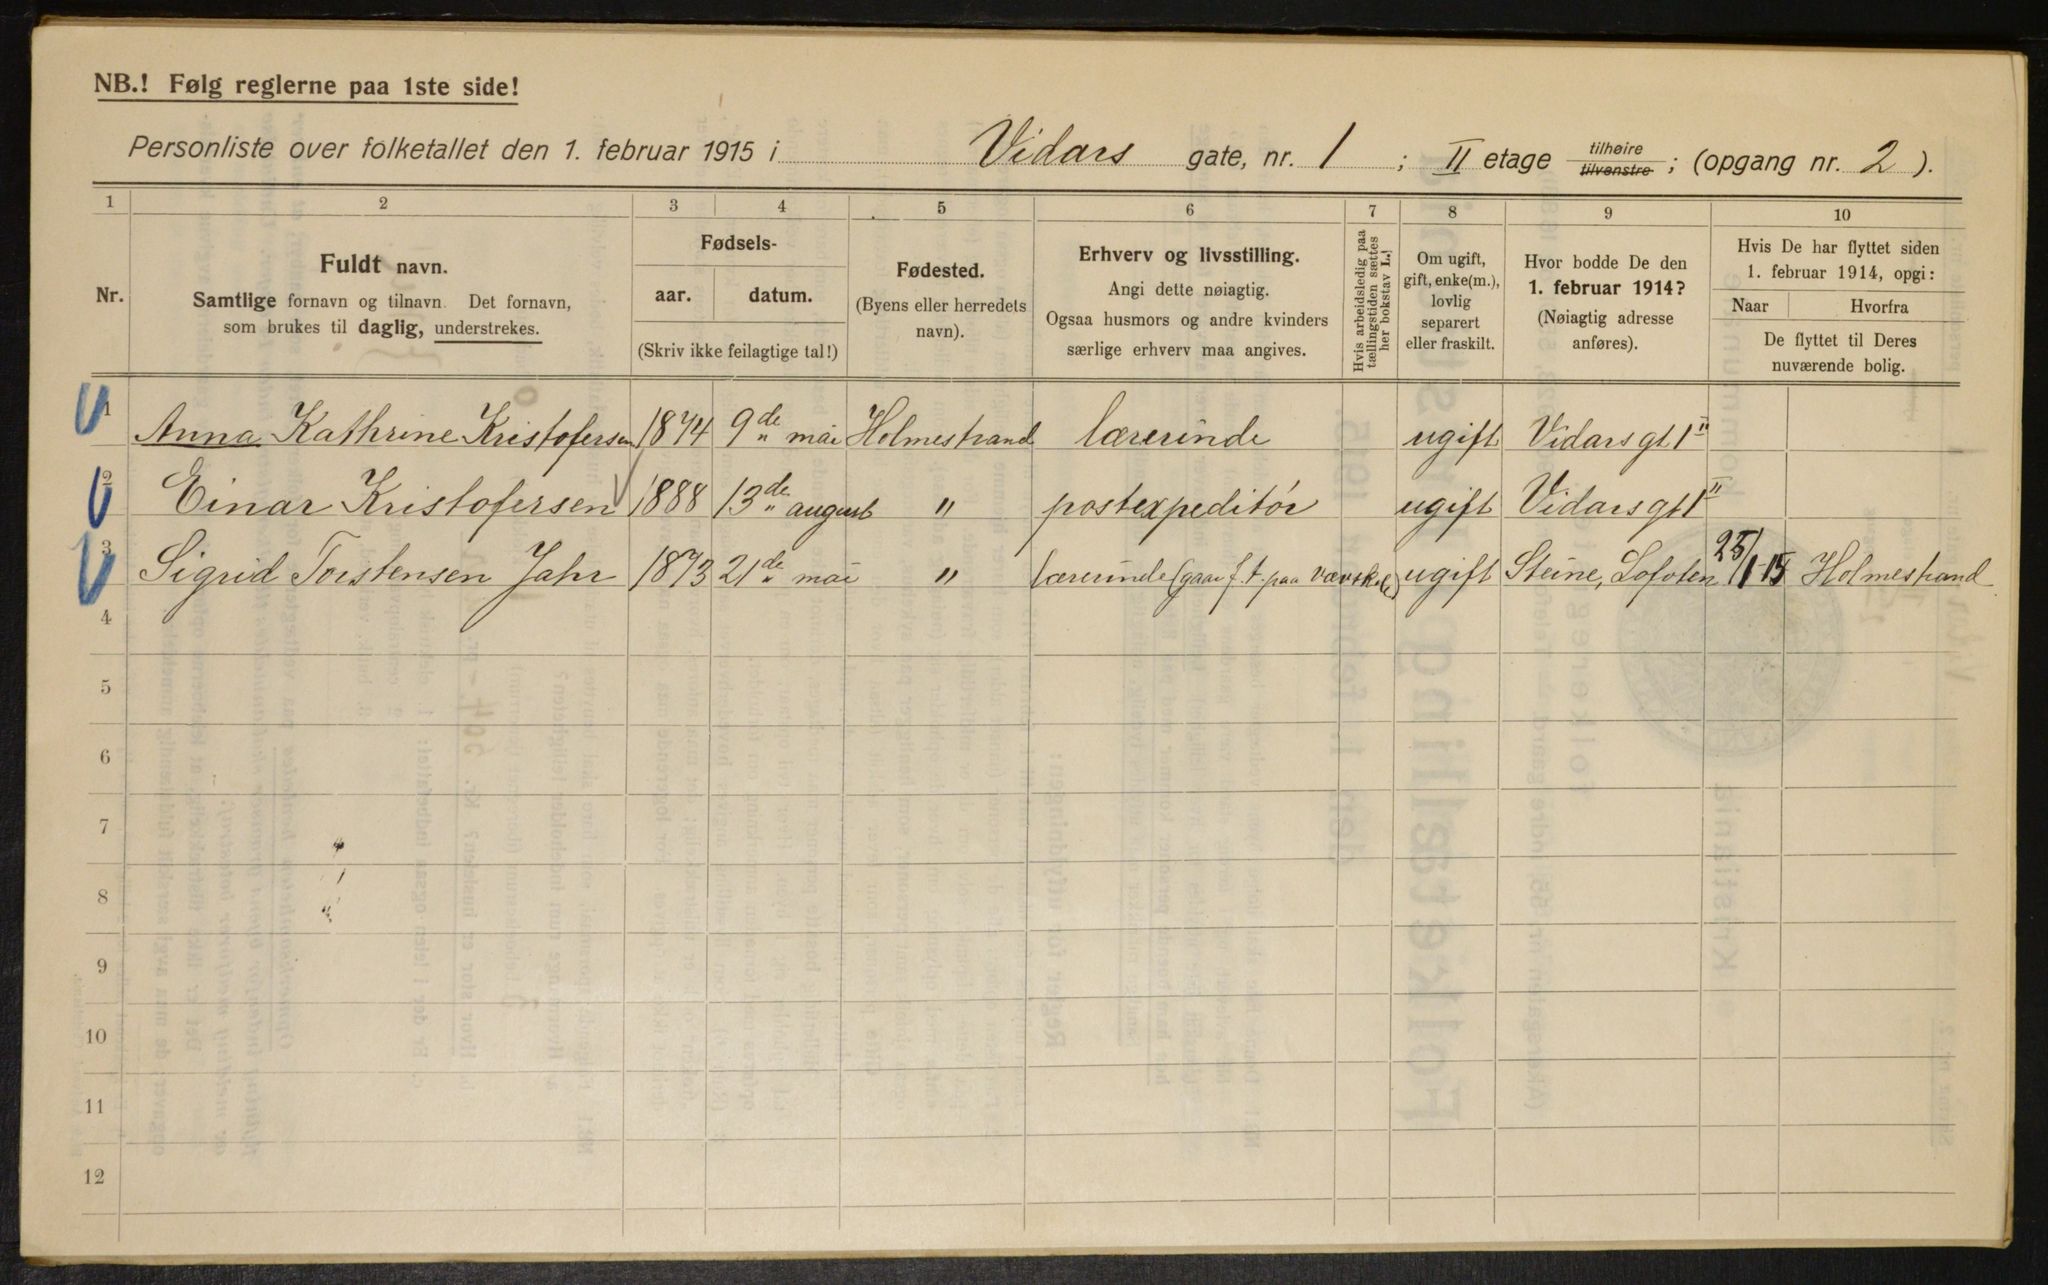 NB.! Følg reglerne paa 1ste side!
Personliste over folketallet den 1. februar 1915 i Vidars gate, nr. 1 ; II etage tilhøire tilvenstre ; (opgang nr. 2 ).
1 2 3 4 5 6 7 8 9 10
Nr.
Fuldt navn.
Samtlige fornavn og tilnavn. Det fornavn,
som brukes til daglig, understrekes.
Fødsels-
aar. datum.
(Skriv ikke feilagtige tal!)
Fødested.
(Byens eller herredets
navn).
Erhverv og livsstilling.
Angi dette nøiagtig.
Ogsaa husmors og andre kvinders
særlige erhverv maa angives.
Hvis arbeidsledig paa
tællingstiden sættes
her bokstav L.
Om ugift,
gift, enke(m.),
lovlig
separert
eller fraskilt.
Hvor bodde De den
1. februar 1914?
(Nøiagtig adresse
anføres).
Hvis De har flyttet siden
1. februar 1914, opgi:
Naar Hvorfra
De flyttet til Deres
nuværende bolig.
1 Anna Kathrine Kristofersen 1874 9de mai Holmestrand lærerinde ugift Vidarsgt 1 II
2 Einar Kristofersen 1888 13de august " postexpeditør ugift Vidarsgt 1 II
3 Sigrid Torstensen Jahr 1873 21de mai " lærerinde (gaar f. t. paa vævskole) ugift Steine, Lofoten 25/1-15 Holmestrand
4
5
6
7
8
9
10
11
12